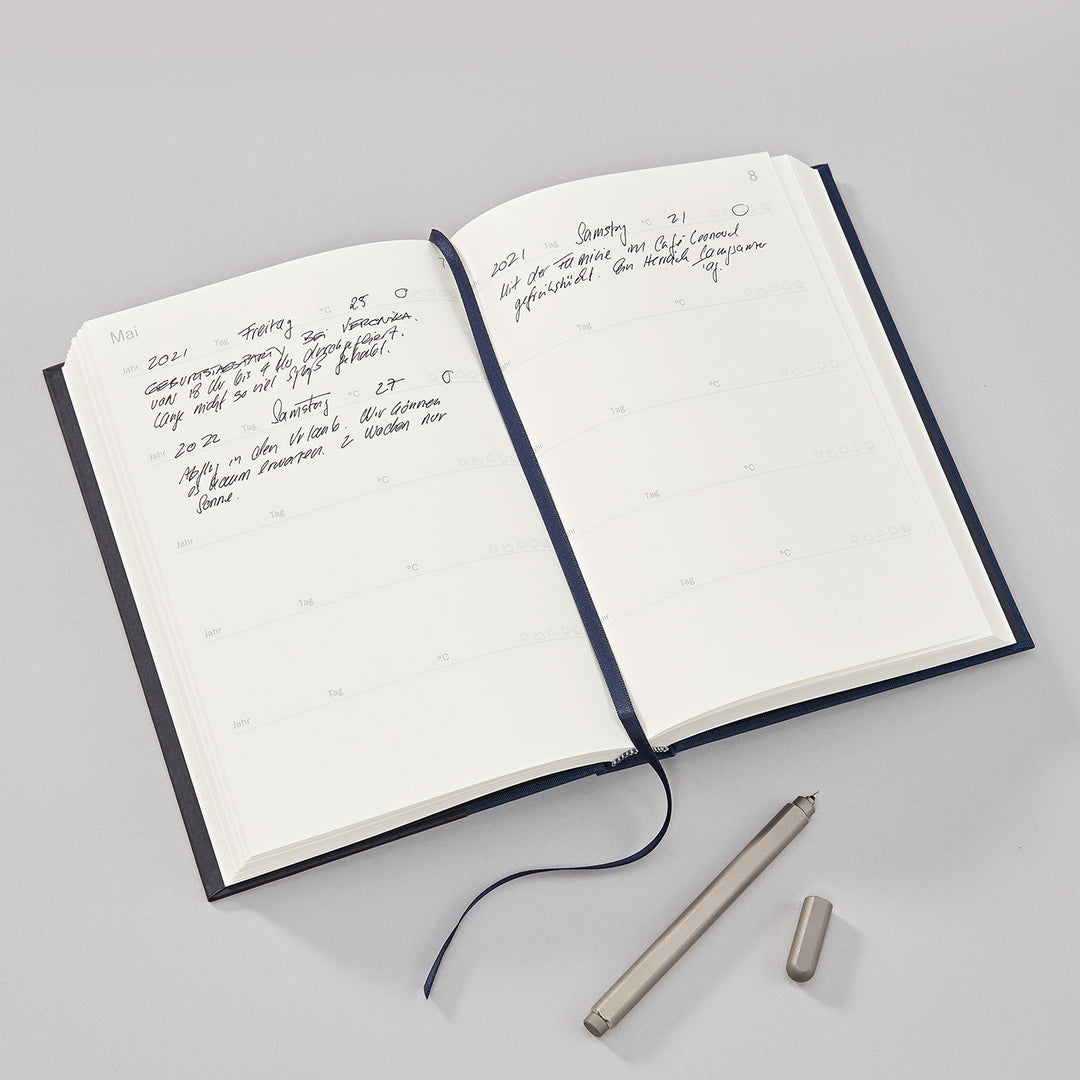 Mai
7
Jahr 2021 Tag Freitag °C 25
GEBURTSTAGSPARTY BEI VERONIKA.
von 18 Uhr bis 4 Uhr durchgefeiert.
Lange nicht so viel Spaß gehabt.
Jahr 2022 Tag Samstag °C 27
Abflug in den Urlaub. Wir können
es kaum erwarten. 2 Wochen nur
Sonne.
Jahr Tag °C
Jahr Tag °C
Jahr Tag °C
8
2021 Tag Samstag °C 21
Mit der Familie im Café Leonard
gefrühstückt. Ein Herrlich Langsamer
Tag.
Tag °C
Tag °C
hr Tag °C
hr Tag °C